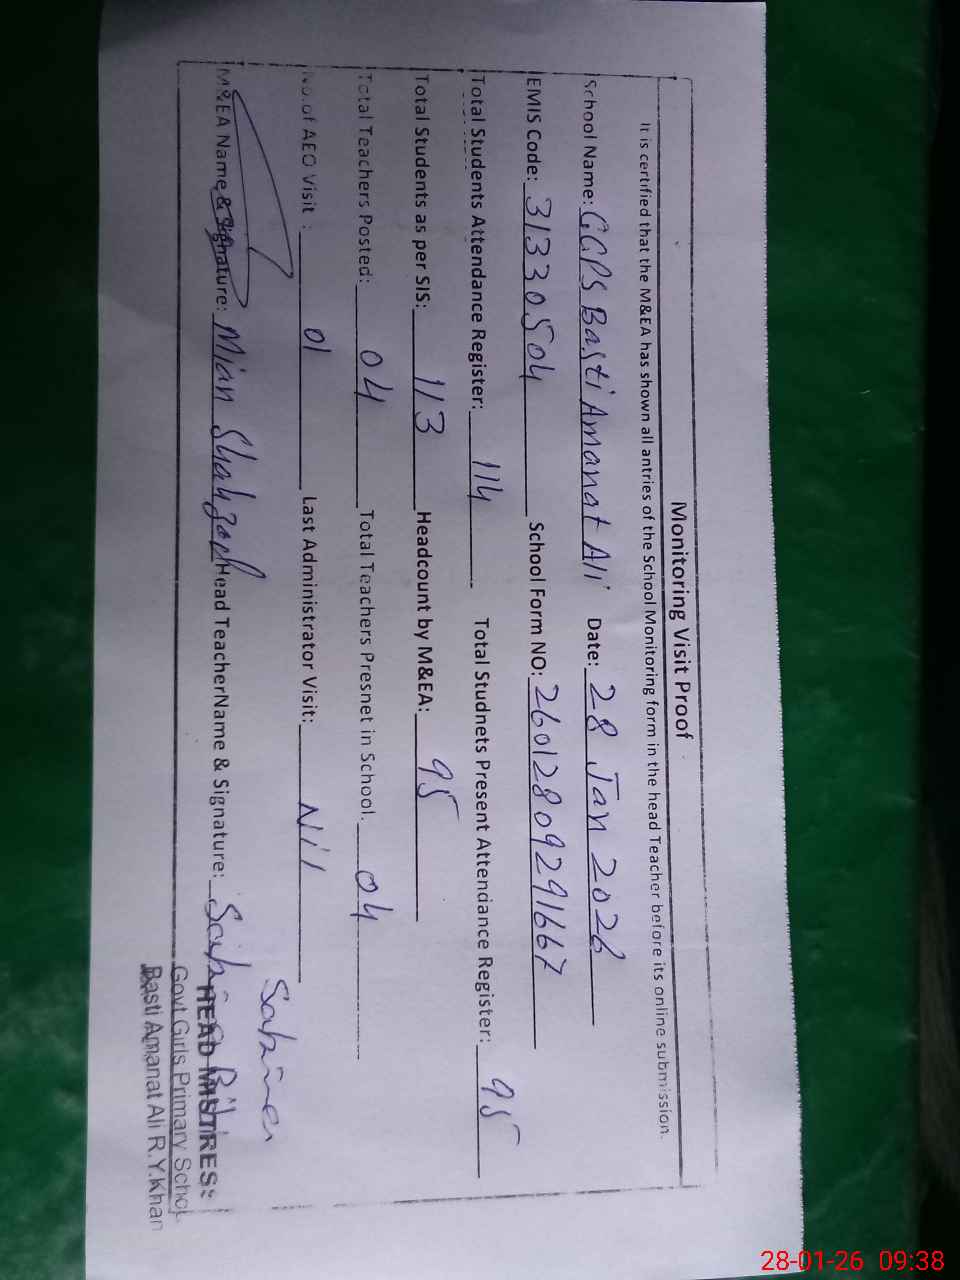 Monitoring Visit Proof
It is certified that the M&EA has shown all antries of the School Monitoring form in the head Teacher before its online submission.
School Name: GGPS Basti Amanat Ali Date: 28 Jan 2026
EMIS Code: 31330504 School Form NO: 26012809291667
Total Students Attendance Register: 114 Total Studnets Present Attendance Register: 95
Total Students as per SIS: 113 Headcount by M&EA: 95
Total Teachers Posted: 04 Total Teachers Presnet in School. 04
No.of AEO Visit : 01 Last Administrator Visit: Nil
M&EA Name & Signature: Mian Shahzaib Head TeacherName & Signature:
HEAD MISTRES:
Govt Girls Primary School
Basti Amanat Ali R.Y.Khan
28-01-26 09:38